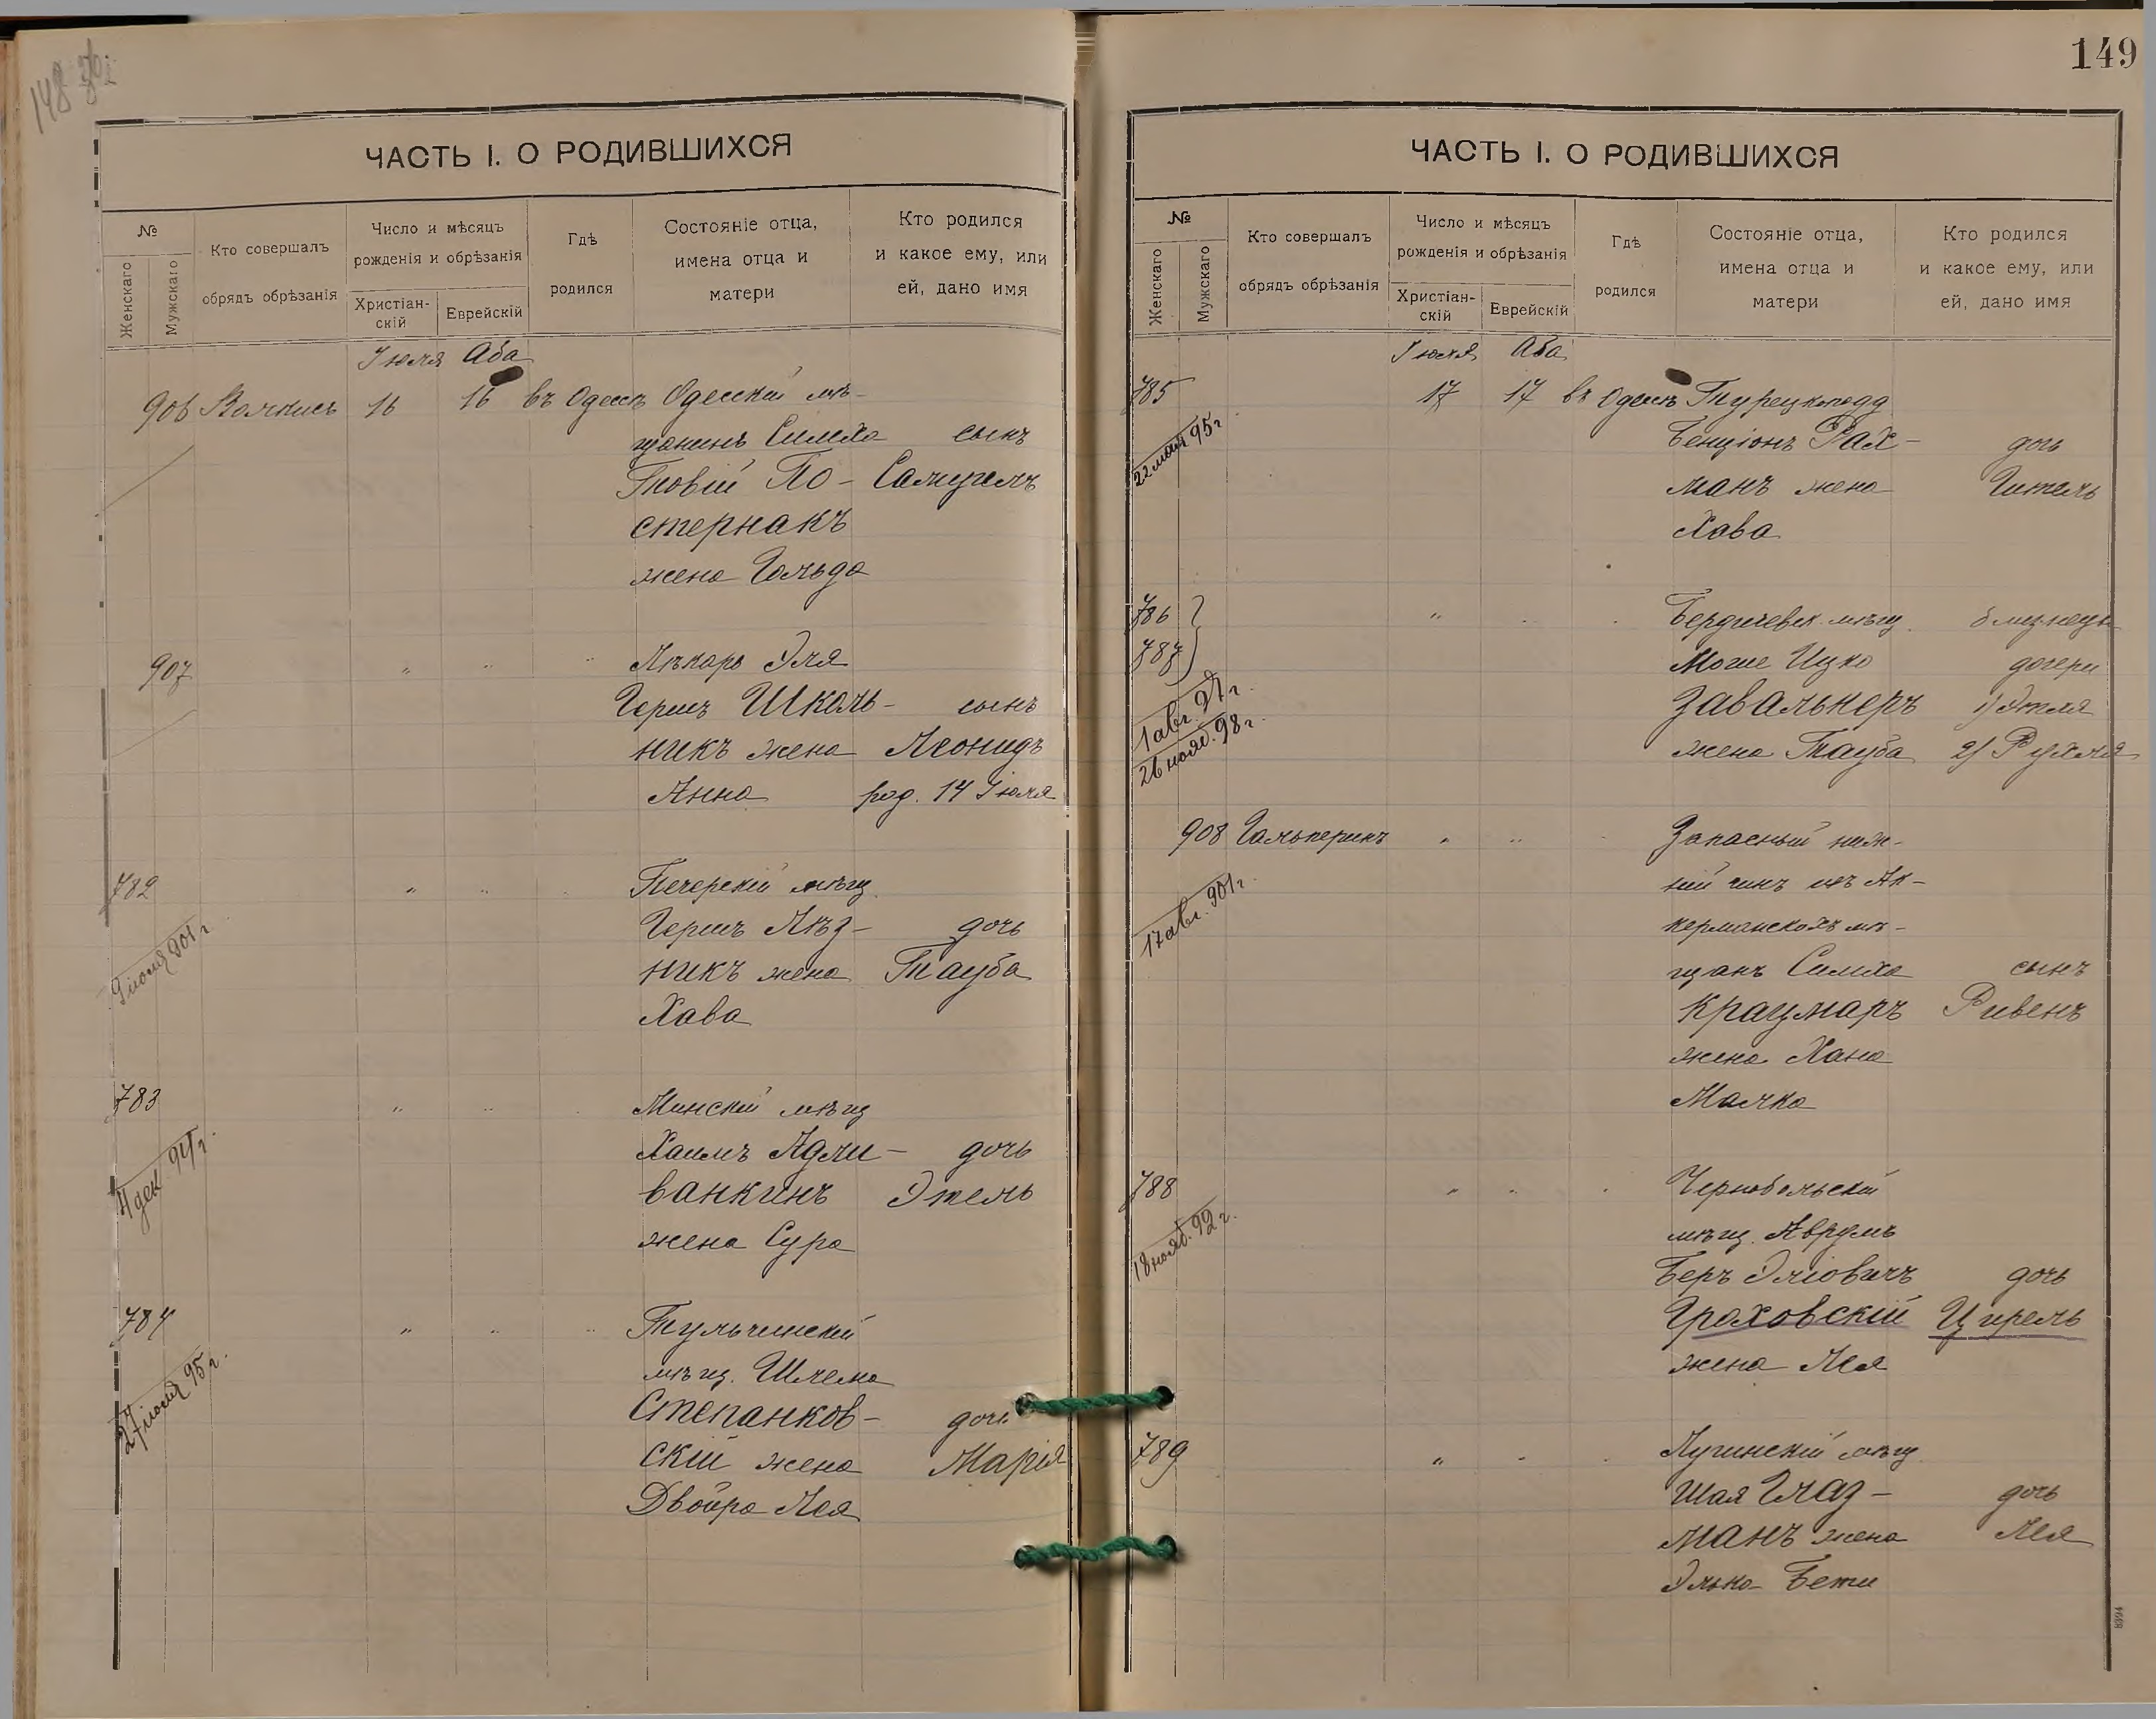 148 об.
ЧАСТЬ I. О РОДИВШИХСЯ
№
Женскаго
Мужскаго
Кто совершалъ
обрядъ обрѣзанія
Число и мѣсяцъ
рожденія и обрѣзанія
Христіан-
скій
Еврейскій
Гдѣ
родился
Состояніе отца,
имена отца и
матери
Кто родился
и какое ему, или
ей, дано имя
Іюля Аба
906 16 16 въ Одессѣ Одесскій мѣ-
щанинъ Симха сынъ
Товій По- Самуилъ
стернакъ
жена Гольда
907 " " " Лѣкарь Эля
Гершъ Школь- сынъ
никъ жена Леонидъ
Анна род. 14 Іюля
782 " " Печерскій мѣщ.
Гершъ Лѣз- дочь
никъ жена Тауба
Хава
9 іюля 901 г.
783 " " Минскій мѣщ
Хаимъ Адли- дочь
ванкинъ Этель
жена Сура
4 дек 94 г.
784 " " " Тульчинскій
мѣщ. Шлема
Степанков- дочь
скій жена Марія
Двойра Лея
27 іюня 95 г.
149
ЧАСТЬ I. О РОДИВШИХСЯ
№
Женскаго
Мужскаго
Кто совершалъ
обрядъ обрѣзанія
Число и мѣсяцъ
рожденія и обрѣзанія
Христіан-
скій
Еврейскій
Гдѣ
родился
Состояніе отца,
имена отца и
матери
Кто родился
и какое ему, или
ей, дано имя
Іюля Аба
785 17 17 въ Одессѣ Турецкоподд
Бенціонъ Рах- дочь
манъ жена Гитель
Хава
22 мая 95 г
786 " Бердичевск. мѣщ. близнецы
787 Мошe Ицко дочери
Завальнеръ 1) Этля
жена Тауба 2) Рухля
1 авг. 97 г.
26 нояб. 98 г.
908 Гальперинъ " " Запасный ниж-
ній чинъ изъ Ак-
керманскихъ мѣ-
щанъ Симха сынъ
Краумаръ Рувенъ
жена Хана
Малка
17 авг. 901 г.
788 " " Чернобыльскій
мѣщ. Аврумъ
Беръ Эліовичъ дочь
Гроховскій Цирель
жена Лея
18 нояб. 92 г.
789 " Лугинскій мѣщ
Шая Глаз- дочь
манъ жена Лея
Элька Бети
8594